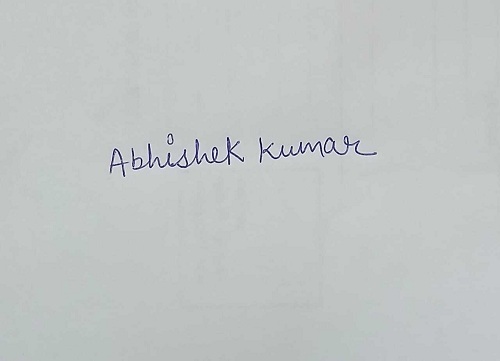 Abhishek Kumar